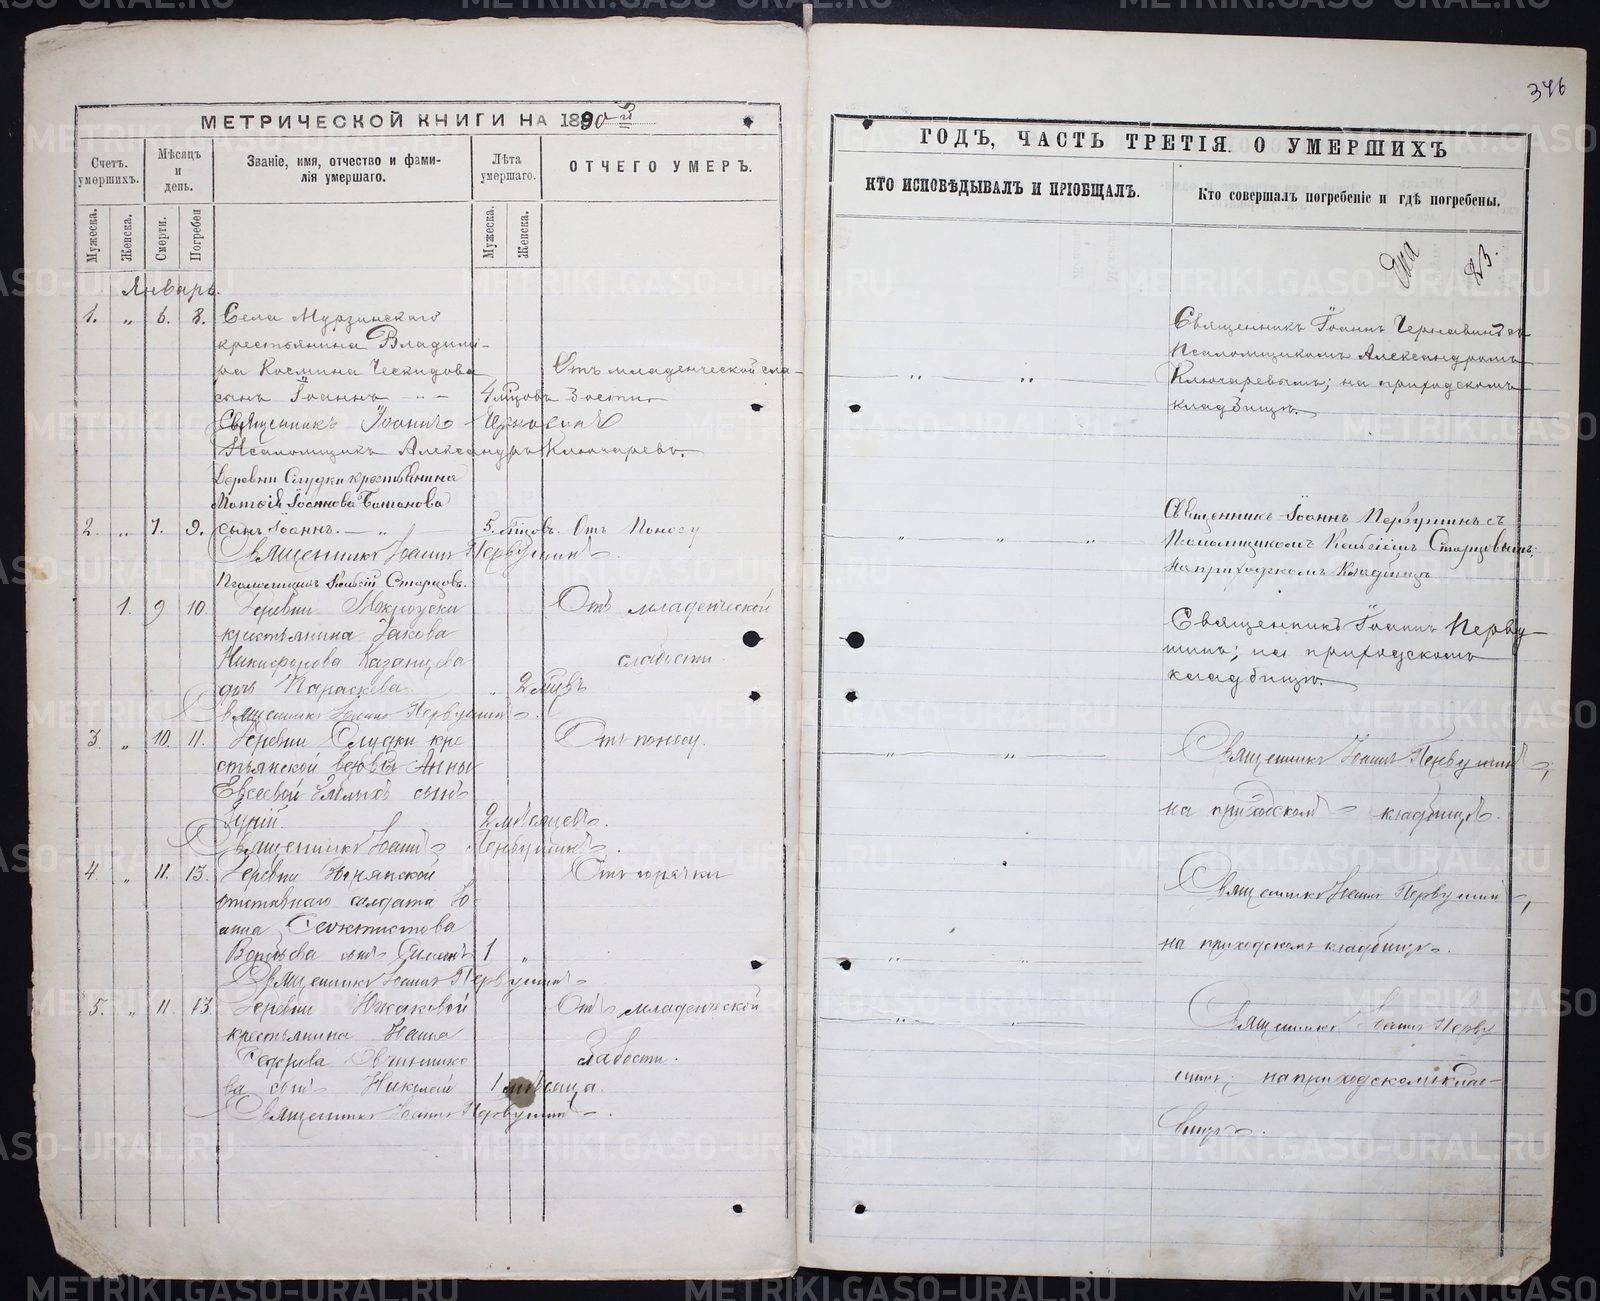 346
МЕТРИЧЕСКОЙ КНИГИ НА 1890й
Счетъ умершихъ.
Мѣсяцъ и день.
Званіе, имя, отчество и фами-
лія умершаго.
Лѣта умершаго.
ОТЧЕГО УМЕРЪ.
Мужеска.
Женска.
Смерти.
Погребен
Мужеска.
Женска.
Январь.
1. „ 6. 8. Села Мурзинскаго
крестьянина Владими-
ра Космина Ческидова Отъ младенческой сла-
сынъ Іоаннъ 4 мцовъ бости
Священникъ Іоаннъ Чернавинъ
Псаломщикъ Александръ Ключаревъ.
Деревни Слудки крестьянина
Матѳія Іоаннова Батанова
2. „ 7. 9. сынъ Іоаннъ. — „ 5. мцовъ. Отъ Поносу
Священникъ Іоаннъ Первушинъ.
Псаломщикъ Старцовъ.
1. 9 10. Деревни Мокроуски Отъ младенческой
крестьянина Іакова
Никифорова Казанцева слабости.
дчь Параскева „ 2 мцвъ
Священникъ Іоаннъ Первушинъ.
3. „ 10. 11. Деревни Слудки кре Отъ поносу.
стьянской вдовы Анны
Евсеевой сынъ
Гурій. 2 мѣсяцевъ.
Священникъ Іоаннъ Первушинъ.
4 „ 11. 13. Деревни Отъ горячки
отставнаго солдата Іо-
анна Ѳеоктистова
Воробьева сынъ 1 „
Священникъ Іоаннъ Первушинъ
5. „ 11. 13. Деревни Южаковой Отъ младенческой
крестьянина Іоанна
Овчиннико слабости.
ва сынъ Николай 1 мѣсяца.
Священникъ Іоаннъ Первушинъ.
ГОДЪ, ЧАСТЬ ТРЕТІЯ. О УМЕРШИХЪ
КТО ИСПОВѢДЫВАЛЪ И ПРІОБЩАЛЪ.
Кто совершалъ погребеніе и гдѣ погребены.
Священникъ Іоаннъ Чернавинъ съ
Псаломщикомъ Александромъ
„ „ Ключаревымъ; на приходскомъ
кладбищѣ.
Священникъ Іоаннъ Первушинъ съ
„ „ „ Псаломщикомъ Старцовымъ;
на приходскомъ кладбищѣ
Священникъ Іоаннъ Перву-
шинъ; на приходскомъ
кладбищѣ.
„ „ Священникъ Іоаннъ Первушинъ;
на приходскомъ кладбищѣ.
Священникъ Іоаннъ Первушинъ,
„ „ на приходскомъ кладбищѣ.
„ „ Священникъ Іоаннъ Перву
шинъ; на приходскомъ клад-
бищѣ.
METRIKI.GASO-URAL.RU